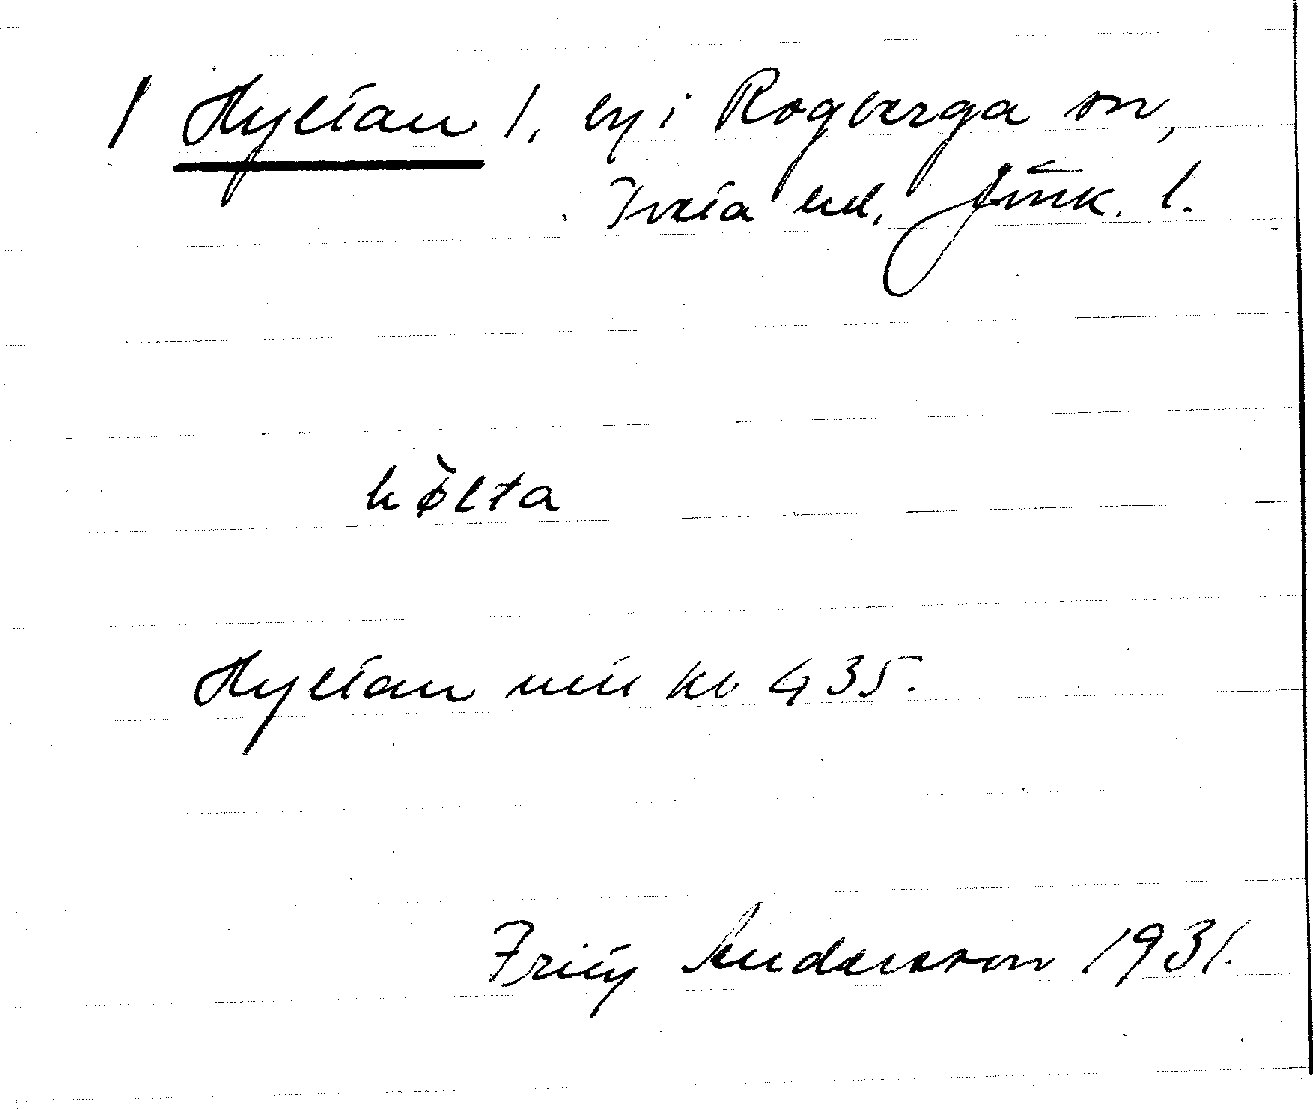 / Hyltan /, by i Rogberga sn,
Tveta hd, Jönk. l.
hø̀lta
Hyltan mtl kb 435.
Fritz Andersson 1931.